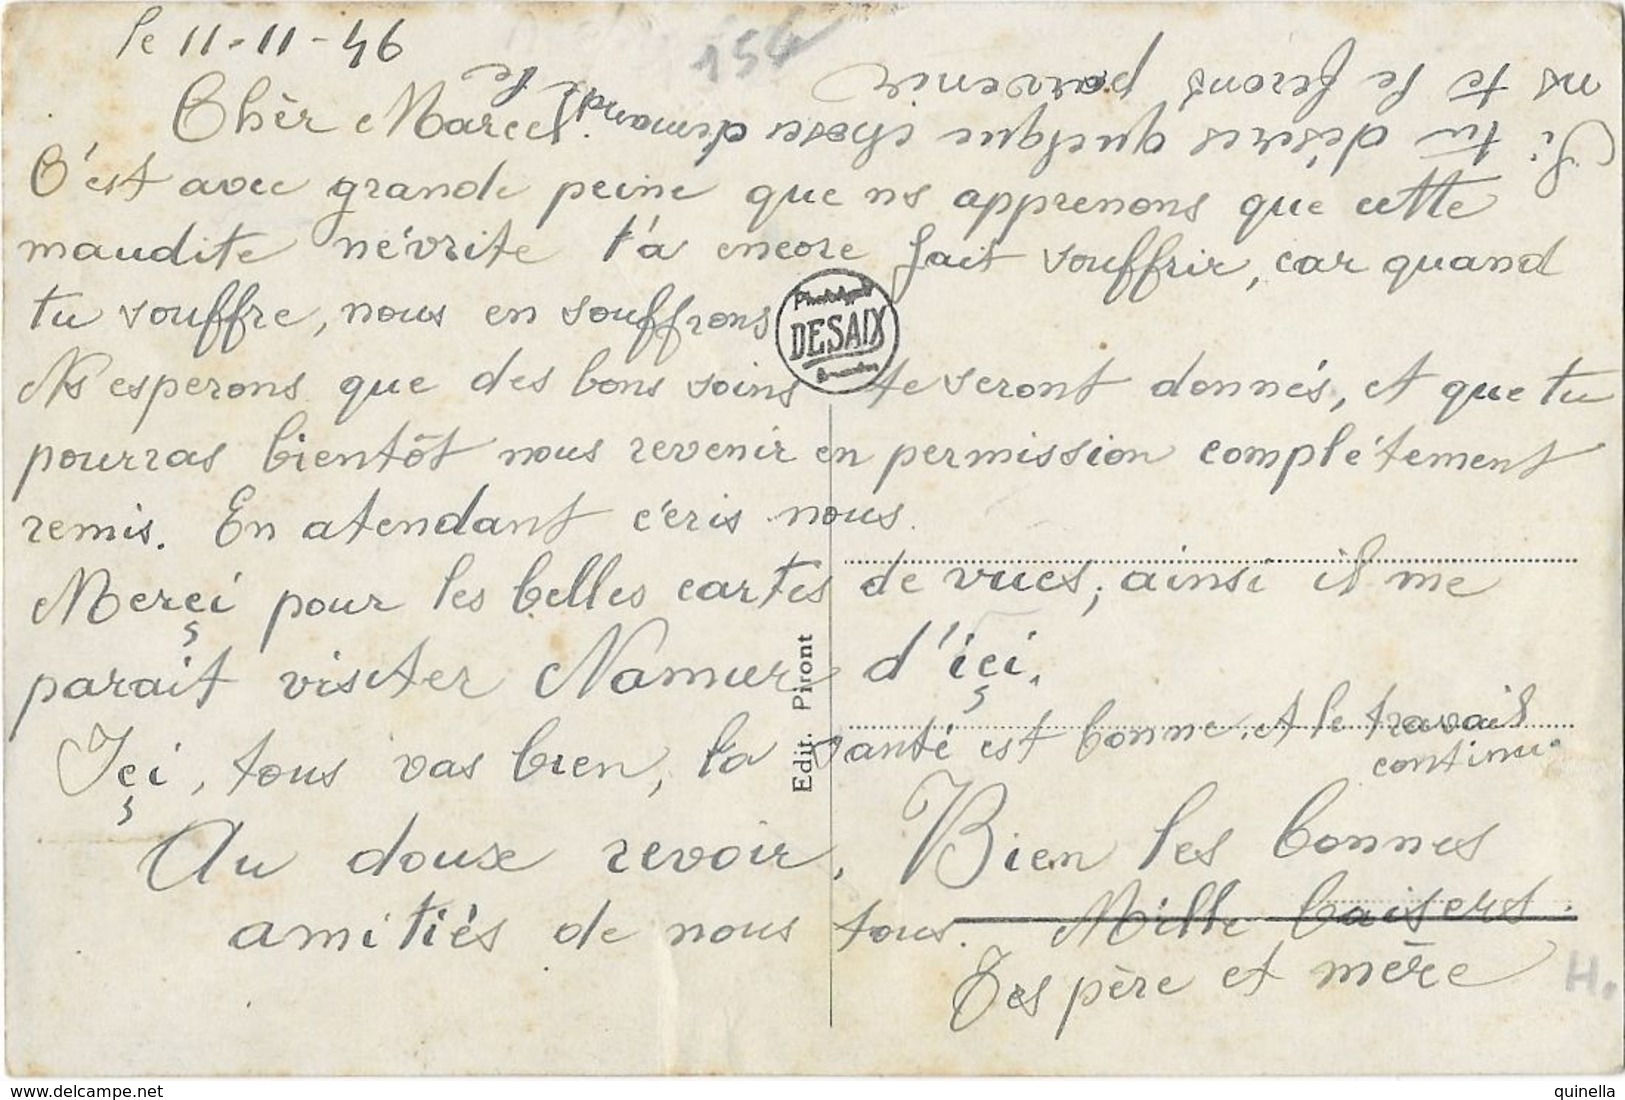 le 11-11-46
154
Chèr Marcel.
C'est avec grande peine que ns apprenons que cette
maudite névrite t'a encore fait souffrir, car quand
tu souffre, nous en souffrons
Ns esperons que des bons soins te seront donnés, et que tu
pourras bientôt nous revenir en permission complétement
remis. En atendant écris nous.
Merçi pour les belles cartes de vues, ainsi il me
parait visiter Namur d'içi.
Içi, tous vas bien, la santé est bonne, et le travail
continu.
Au doux revoir, Bien les bonnes
amitiés de nous tous. Mille baisers.
Tes père et mère
Si tu désires quelque choses demand le
ns te le ferons parvenir
DESAIX
Edit. Piront
H.
www.delcampe.net
quinella